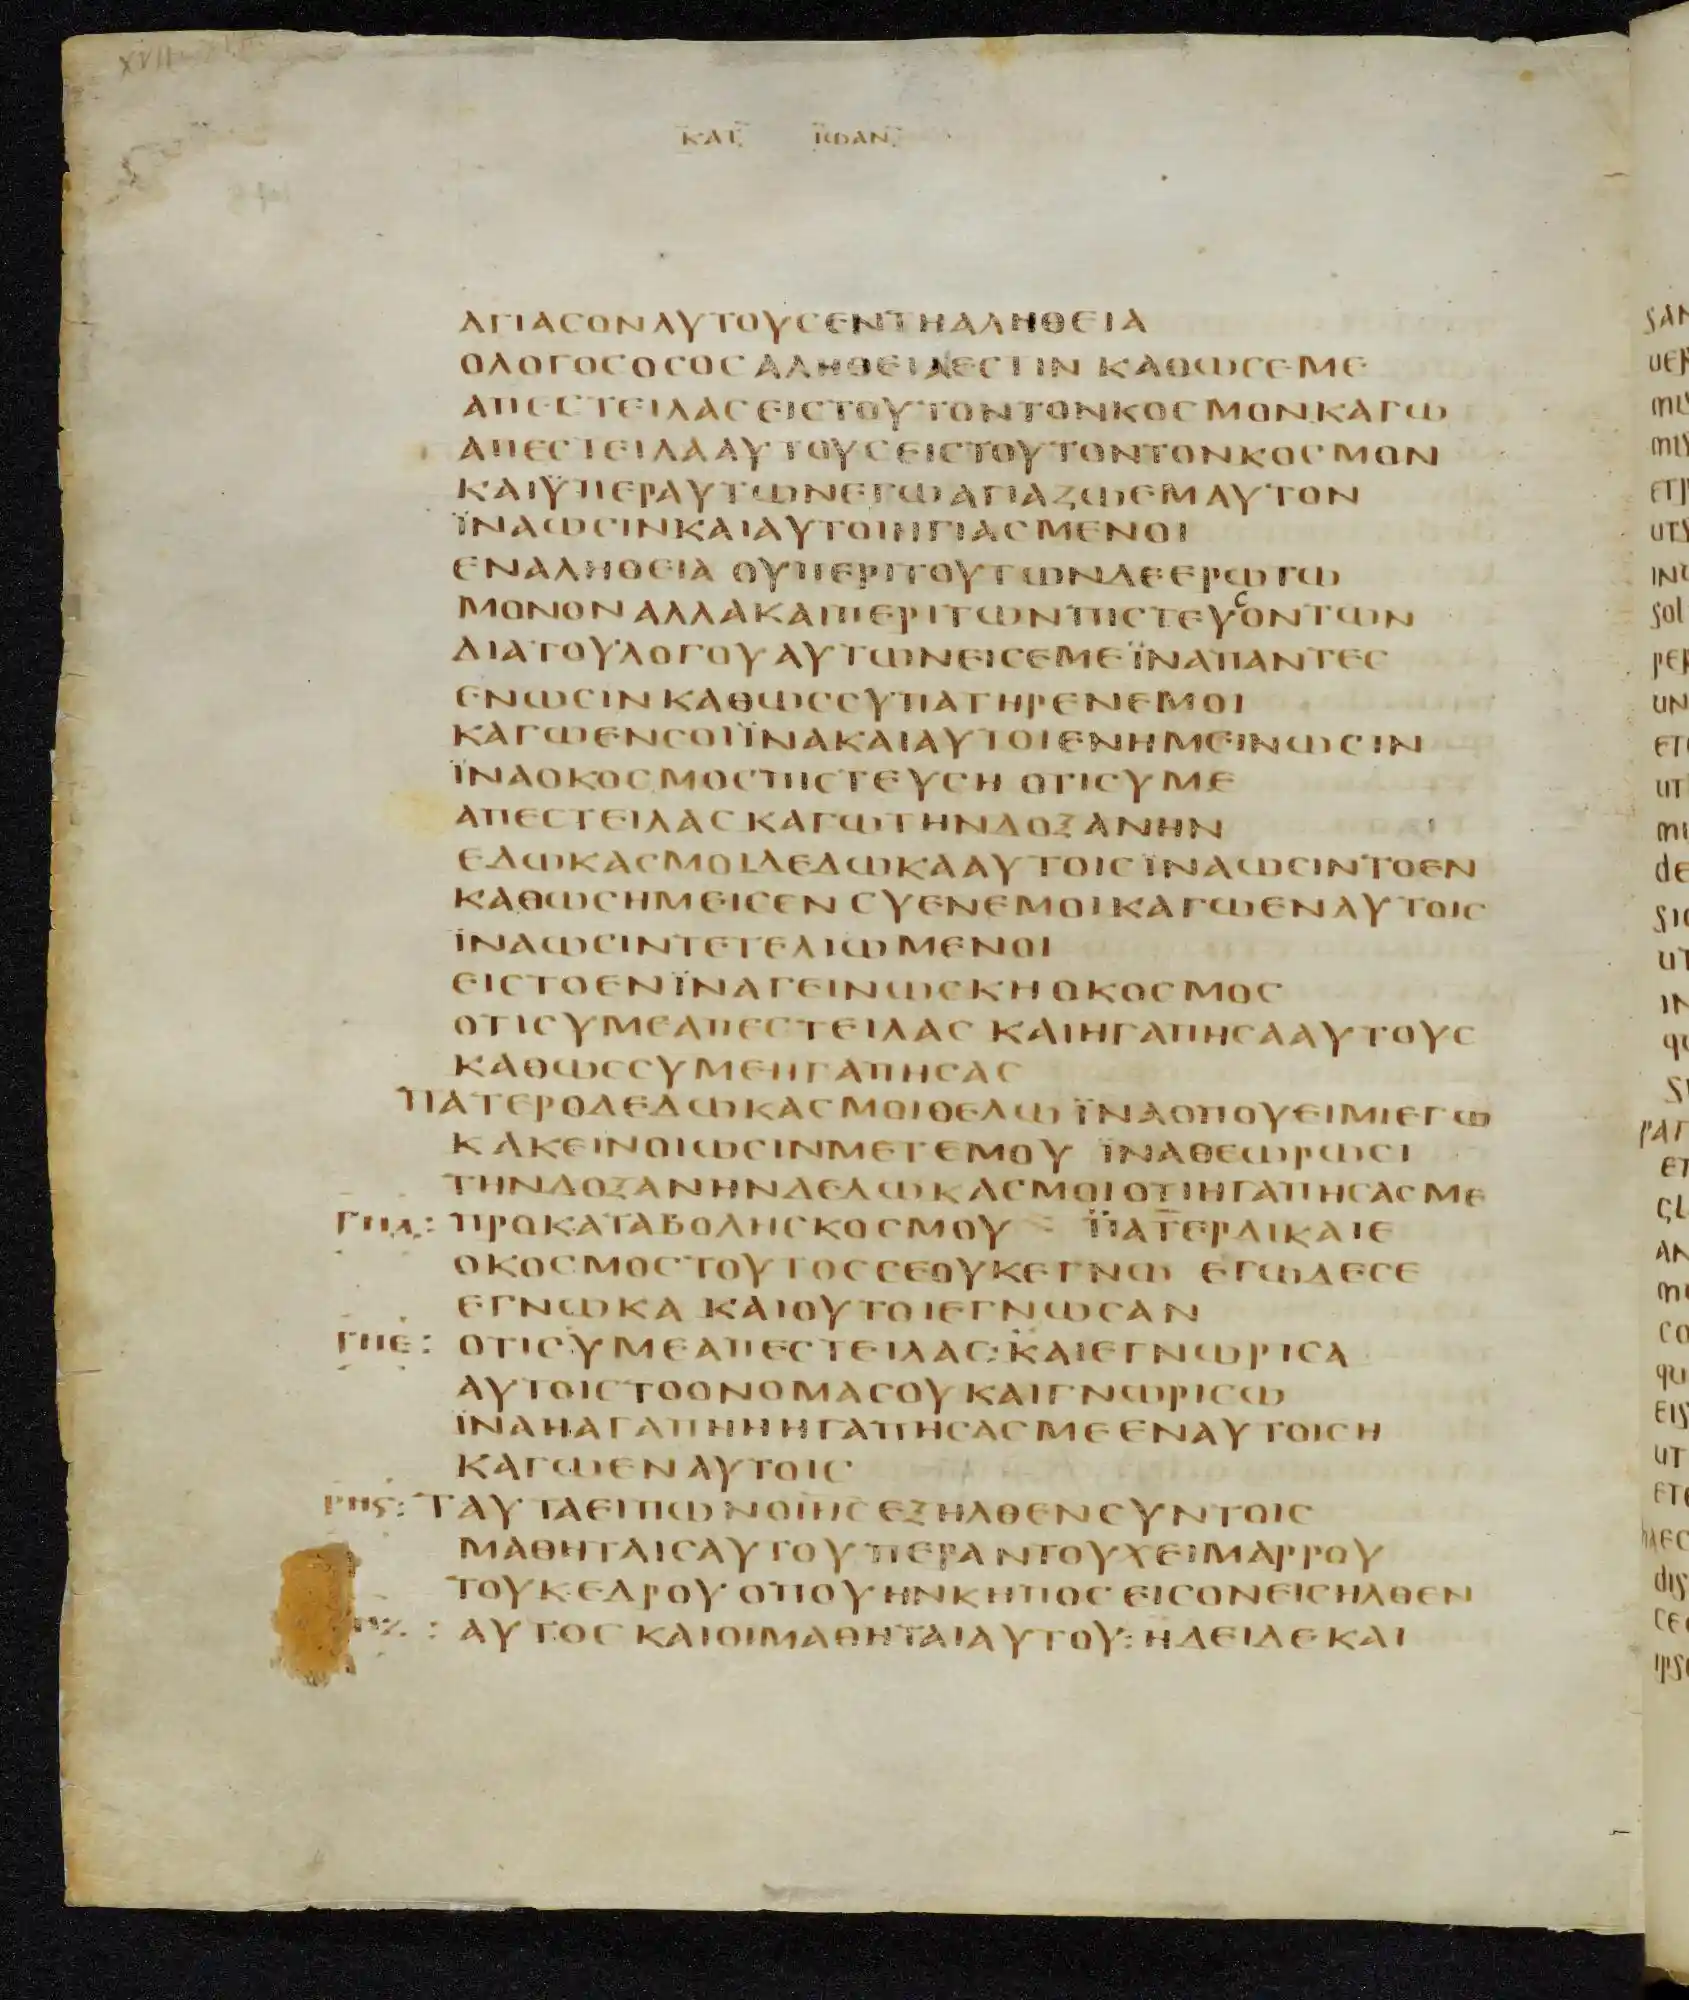 XVII
ΚΑΤ ΙΩΑΝ
ΑΓΙΑCΟΝΑΥΤΟΥCΕΝΤΗΑΛΗΘΕΙΑ
ΟΛΟΓΟCΟCΟCΑΛΗΘΕΙΑΕCΤΙΝ ΚΑΘΩCΕΜΕ
ΑΠΕCΤΕΙΛΑCΕΙCΤΟΥΤΟΝΤΟΝΚΟCΜΟΝΚΑΓΩ
ΑΠΕCΤΕΙΛΑΑΥΤΟΥCΕΙCΤΟΥΤΟΝΤΟΝΚΟCΜΟΝ
ΚΑΙΫΠΕΡΑΥΤΩΝΕΓΩΑΓΙΑΖΩΕΜΑΥΤΟΝ
ΪΝΑΩCΙΝΚΑΙΑΥΤΟΙΗΓΙΑCΜΕΝΟΙ
ΕΝΑΛΗΘΕΙΑ ΟΥΠΕΡΙΤΟΥΤΩΝΔΕΕΡΩΤΩ
ΜΟΝΟΝΑΛΛΑΚΑΙΠΕΡΙΤΩΝΠΙCΤΕΥCΟΝΤΩΝ
ΔΙΑΤΟΥΛΟΓΟΥΑΥΤΩΝΕΙCΕΜΕΪΝΑΠΑΝΤΕC
ΕΝΩCΙΝΚΑΘΩCCΥΠΑΤΗΡΕΝΕΜΟΙ
ΚΑΓΩΕΝCΟΙΪΝΑΚΑΙΑΥΤΟΙΕΝΗΜΕΙΝΩCΙΝ
ΪΝΑΟΚΟCΜΟCΠΙCΤΕΥCΗ ΟΤΙCΥΜΕ
ΑΠΕCΤΕΙΛΑCΚΑΓΩΤΗΝΔΟΞΑΝΗΝ
ΕΔΩΚΑCΜΟΙΔΕΔΩΚΑΑΥΤΟΙCΪΝΑΩCΙΝΤΟΕΝ
ΚΑΘΩCΗΜΕΙCΕΝ CΥΕΝΕΜΟΙΚΑΓΩΕΝΑΥΤΟΙC
ΪΝΑΩCΙΝΤΕΤΕΛΙΩΜΕΝΟΙ
ΕΙCΤΟΕΝΪΝΑΓΕΙΝΩCΚΗΟΚΟCΜΟC
ΟΤΙCΥΜΕΑΠΕCΤΕΙΛΑC ΚΑΙΗΓΑΠΗCΑΑΥΤΟΥC
ΚΑΘΩCCΥΜΕΗΓΑΠΗCΑC
ΠΑΤΕΡΟΔΕΔΩΚΑCΜΟΙΘΕΛΩΪΝΑΟΠΟΥΕΙΜΙΕΓΩ
ΚΑΚΕΙΝΟΙΩCΙΝΜΕΤΕΜΟΥ ΪΝΑΘΕΩΡΩCΙ
ΤΗΝΔΟΞΑΝΗΝΔΕΔΩΚΑCΜΟΙΟΤΙΗΓΑΠΗCΑCΜΕ
ΓΠΔ: ΠΡΟΚΑΤΑΒΟΛΗCΚΟCΜΟΥ ΠΑΤΕΡΔΙΚΑΙΕ
ΟΚΟCΜΟCΤΟΥΤΟCCΕΟΥΚΕΓΝΩ ΕΓΩΔΕCΕ
ΕΓΝΩΚΑ ΚΑΙΟΥΤΟΙΕΓΝΩCΑΝ
ΓΠΕ: ΟΤΙCΥΜΕΑΠΕCΤΕΙΛΑC:ΚΑΙΕΓΝΩΡΙCΑ
ΑΥΤΟΙCΤΟΟΝΟΜΑCΟΥΚΑΙΓΝΩΡΙCΩ
ΪΝΑΗΑΓΑΠΗΗΗΓΑΠΗCΑCΜΕΕΝΑΥΤΟΙCΗ
ΚΑΓΩΕΝΑΥΤΟΙC
ΡΠϚ: ΤΑΥΤΑΕΙΠΩΝΟΙΗCΕΞΗΛΘΕΝCΥΝΤΟΙC
ΜΑΘΗΤΑΙCΑΥΤΟΥΠΕΡΑΝΤΟΥΧΕΙΜΑΡΡΟΥ
ΤΟΥΚΕΔΡΟΥΟΠΟΥΗΝΚΗΠΟCΕΙCΟΝΕΙCΗΛΘΕΝ
ΠΖ: ΑΥΤΟCΚΑΙΟΙΜΑΘΗΤΑΙΑΥΤΟΥ:ΗΔΕΙΔΕΚΑΙ